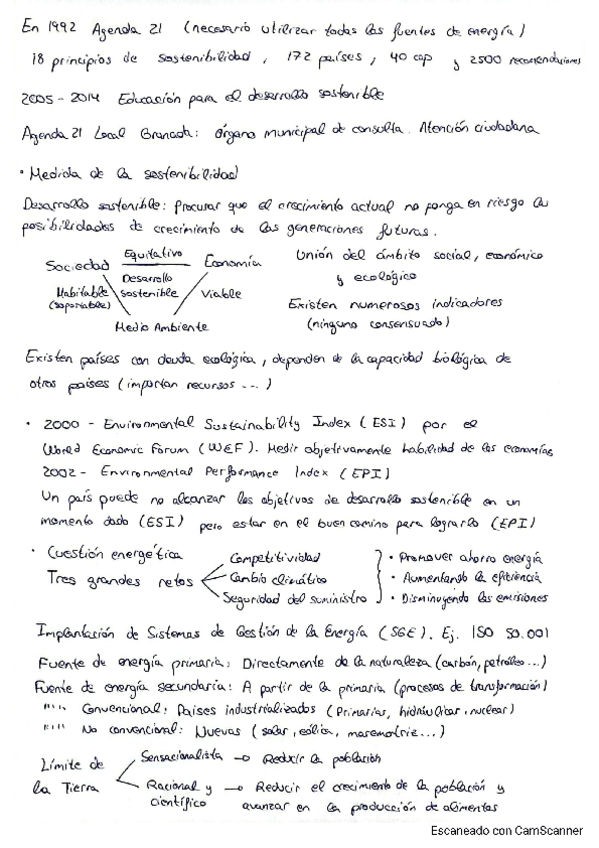 En 1992 Agenda 21 (necesario utilizar todas las fuentes de energía)
18 principios de sostenibilidad, 172 países, 40 cap y 2500 recomendaciones
2005-2014 Educación para el desarrollo sostenible
Agenda 21 Local Granada: órgano municipal de consulta. Atención ciudadana
• Medida de la sostenibilidad
Desarrollo sostenible: procurar que el crecimiento actual no ponga en riesgo las
posibilidades de crecimiento de las generaciones futuras.
Sociedad Equitativo Economía
Habitable (soportable) Desarrollo sostenible Viable
Medio Ambiente
Unión del ámbito social, económico
y ecológico
Existen numerosos indicadores
(ninguno consensuado)
Existen países con deuda ecológica, dependen de la capacidad biológica de
otros países (importan recursos ...)
• 2000 - Environmental Sustainability Index (ESI) por el
World Economic Forum (WEF). Medir objetivamente habilidad de las economías
2002 - Environmental Performance Index (EPI)
Un país puede no alcanzar los objetivos de desarrollo sostenible en un
momento dado (ESI) pero estar en el buen camino para lograrlo (EPI)
• Cuestión energética
Tres grandes retos
Competitividad
Cambio climático
Seguridad del suministro
• Promover ahorro energía
• Aumentando la eficiencia
• Disminuyendo las emisiones
Implantación de Sistemas de Gestión de la Energía (SGE). Ej. ISO 50.001
Fuente de energía primaria: Directamente de la naturaleza (carbón, petróleo...)
Fuente de energía secundaria: A partir de la primaria (procesos de transformación)
"" "" Convencional: Países industrializados (Primarias, hidráulica, nuclear)
"" "" No convencional: Nuevas (solar, eólica, maremotriz...)
Límite de
la Tierra
Sensacionalista → Reducir la población
Racional y científico → Reducir el crecimiento de la población y
avanzar en la producción de alimentos
Escaneado con CamScanner